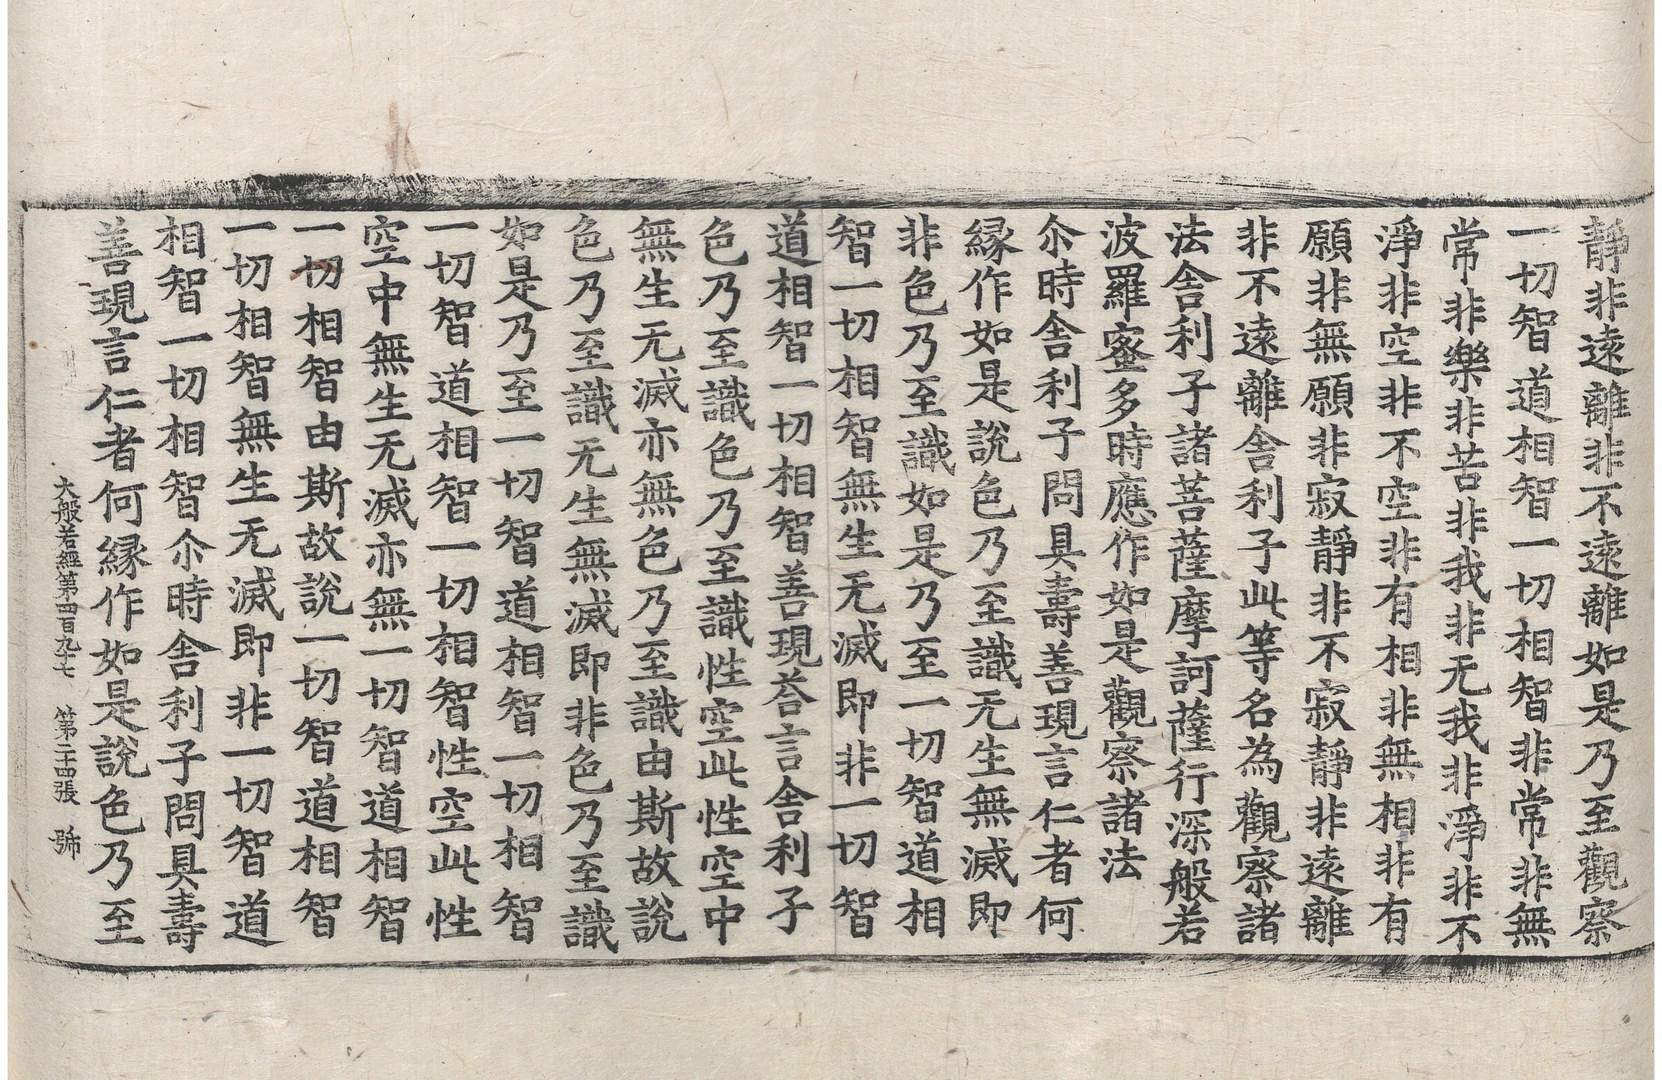 靜非遠離非不遠離如是乃至觀察
一切智道相智一切相智非常非無
常非樂非苦非我非无我非淨非不
淨非空非不空非有相非無相非有
願非無願非寂靜非不寂靜非遠離
非不遠離舍利子此等名為觀察諸
法舍利子諸菩薩摩訶薩行深般若
波羅蜜多時應作如是觀察諸法
尒時舍利子問具壽善現言仁者何
縁作如是說色乃至識无生無滅即
非色乃至識如是乃至一切智道相
智一切相智無生无滅即非一切智
道相智一切相智善現荅言舍利子
色乃至識色乃至識性空此性空中
無生无滅亦無色乃至識由斯故說
色乃至識无生無滅即非色乃至識
如是乃至一切智道相智一切相智
一切智道相智一切相智性空此性
空中無生无滅亦無一切智道相智
一切相智由斯故說一切智道相智
一切相智無生无滅即非一切智道
相智一切相智尒時舍利子問具壽
善現言仁者何縁作如是說色乃至
大般若經第四百九十七 第二十四張 號